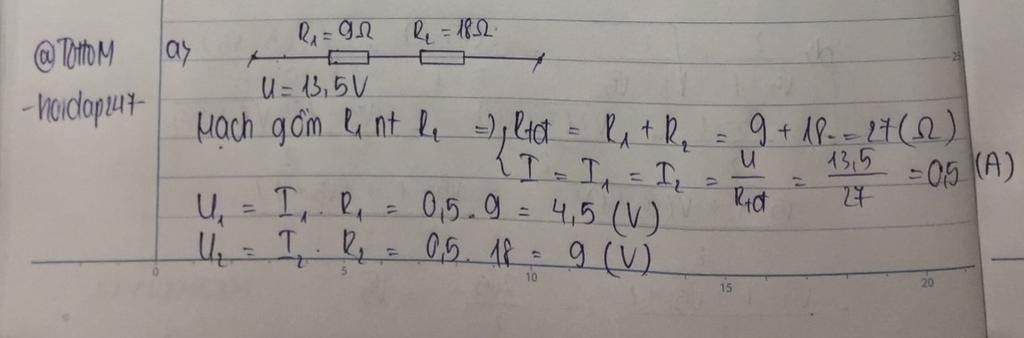 @TOttOM
-hoidap247-
a)
R₁ = 9Ω R₂ = 18Ω
U = 13,5V
Mạch gồm R₁ nt R₂ => { Rtđ = R₁ + R₂ = 9 + 18 = 27 (Ω)
I = I₁ = I₂ = U/Rtđ = 13,5/27 = 0,5 (A)
U₁ = I₁ . R₁ = 0,5 . 9 = 4,5 (V)
U₂ = I₂ . R₂ = 0,5 . 18 = 9 (V)
0 5 10 15 20
25